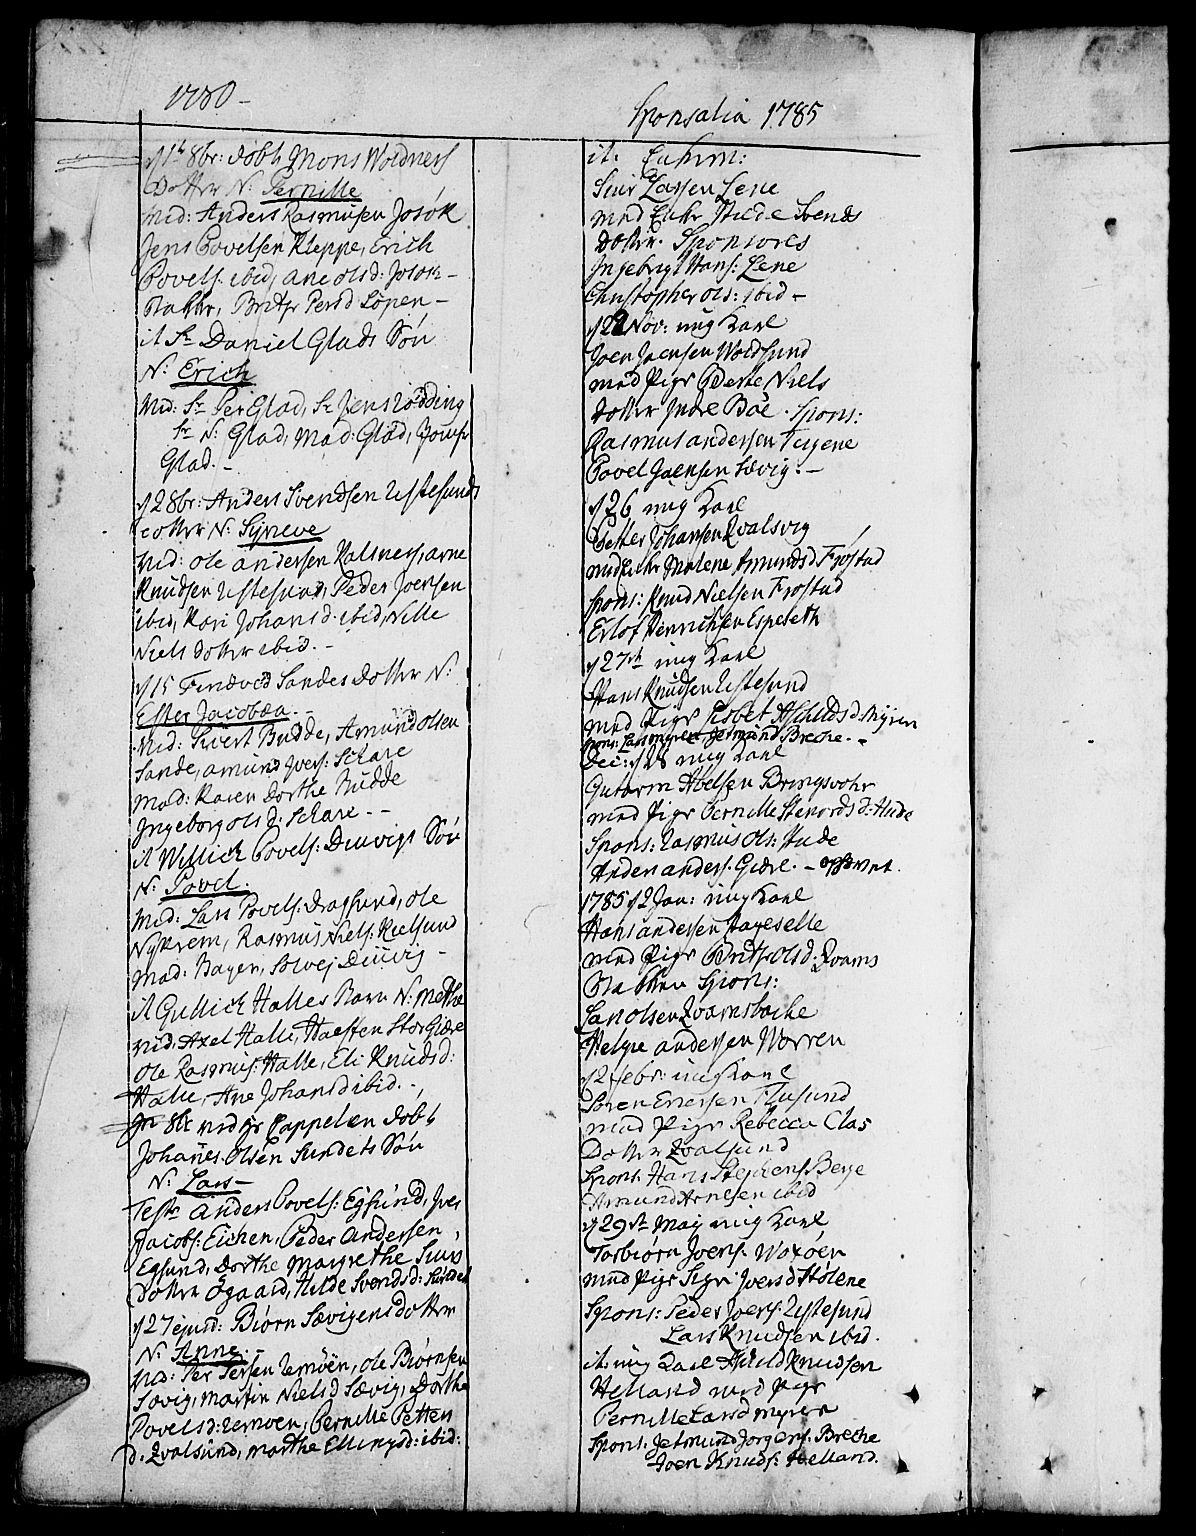 1780-
d 1t 8br: døbt Mons Woldnes
Dotter N: Pernille
Mid: Anders Rasmusen Josøk
Jens Povelsen Kleppe, Erich
Povels: ibid, ane olsd: Josok-
Støkker, Brite Persd Løpen-
it Sr Daniel Glads Søn
N: Erich
Mid: Sr Per Glad, Sr Jens Rødding
Sr N: Glad, Mad: Glad, Jomfr
Glad.-
d 2 8br: Anders Svendsen Ustesunds
dotter N: Synneve
Mid: Ole andersen Kalsnes, arne
Knudsen Ustesund, Peder Joensen
ibid, Kari Johansd. ibid, Nille
Niels dotter ibid.-
d 15 Findved Sandes Dotter N:
Ester Jacobæa.-
Mid: Sivert Budde, Amund olsen
Sande, amund Ivers: Schare
Mad: Karen Dorthe Budde
Ingeborg ols d: Schare.-
it Willich Povels: Dinvigs Søn
N: Povel.
Mid: Lars Povels: Dragsund, ole
Myhrem, Rasmus Niels: Kielsund
Mad: Bayer, Solvej Dinvig-
it Gullich Halles Barn N: Mette
Mid: Axel Halle, Haesten Storgiære
Ole Rasmus: Halle, Eli Knudsd:
Halle, Ane Johansd ibid.-
8br ved Hr Cappelen døbt
Johanes Olsen Sundets Søn
N: Lars-
Test: anders Povels: Egsund, Iver
Jacobs: Eichen, Peder Andersen
Egsund, Dorthe Margrethe Siurs
Dotter Øgaard, Hilde Svendsd: Sundet
d 27 ejusd: Biørn Sævigens dotter
N: Anne.
Mid: Per Persen Remøen, ole Biørnsen
Sævig, Martin Niels d Sævig, Dorthe
Povels d: Remøen, Pernille Petter
d: Qvalsund, Marthe Ellingsd: ibid:
Sponsalia 1785
it. Enkem:
Siur Larsen Lene
med Enke Hilde Svends
dotter. Sponsores
Ingebrigt Hans: Lene
Christopher Ols: ibid-
d 22 Nov: ung Karl
Joen Jaensen Woldsund
med Pige Berte Niels
dotter Indre Bøe. Spons:
Rasmus andersen Teigene
Povel Jaensen Sævig.-
d 26 ung Karl
Petter Johansen Qvalsvig
med Enke Malene Amunds d Frøstad
Spons: Knud Nielsen Frøstad
Erlof Henrichsen Espeseth
d 27de ung Karl
Hans Knudsen Ustesund
med Pige Lisbet Aschilds d Myren
Spons: Lars Myren Jetmund Breche.-
Dec: d 28 ung Karl
Gutorm Abelsen Bringsvohr
med Pige Pernille Stenords d: Hide
Spons: Rasmus Ols: Hide
Anders anders: Giære.- ophævet.
1785 d 2 Jan: ung Karl
Hans andersen Hageselle
med Pige Brithe Ols d: Qvams
Støkken Spons:
Lars Olsen Qvamsbache
Helge andersen Worren
d 2 febr: ung Karl
Søren Eriessen Flusund
med Pige Rebecca Clas
Dotter Qvalsund
Spons: Hans Stephens: Berge
Amund Arnesen ibid
d 29st Maij ung Karl
Torbiørn Joens: Woxøen
med Pige Sigri Ivers d Stølene
Spons: Peder Ivers: Ustesund
Lars Knudsen ibid.
it: ung Karl Arild Knudsen
Helland med Pige
Pernille Lars d Myren
Spons: Jetmund Jørgens: Breche
Joen Knuds: Helland.